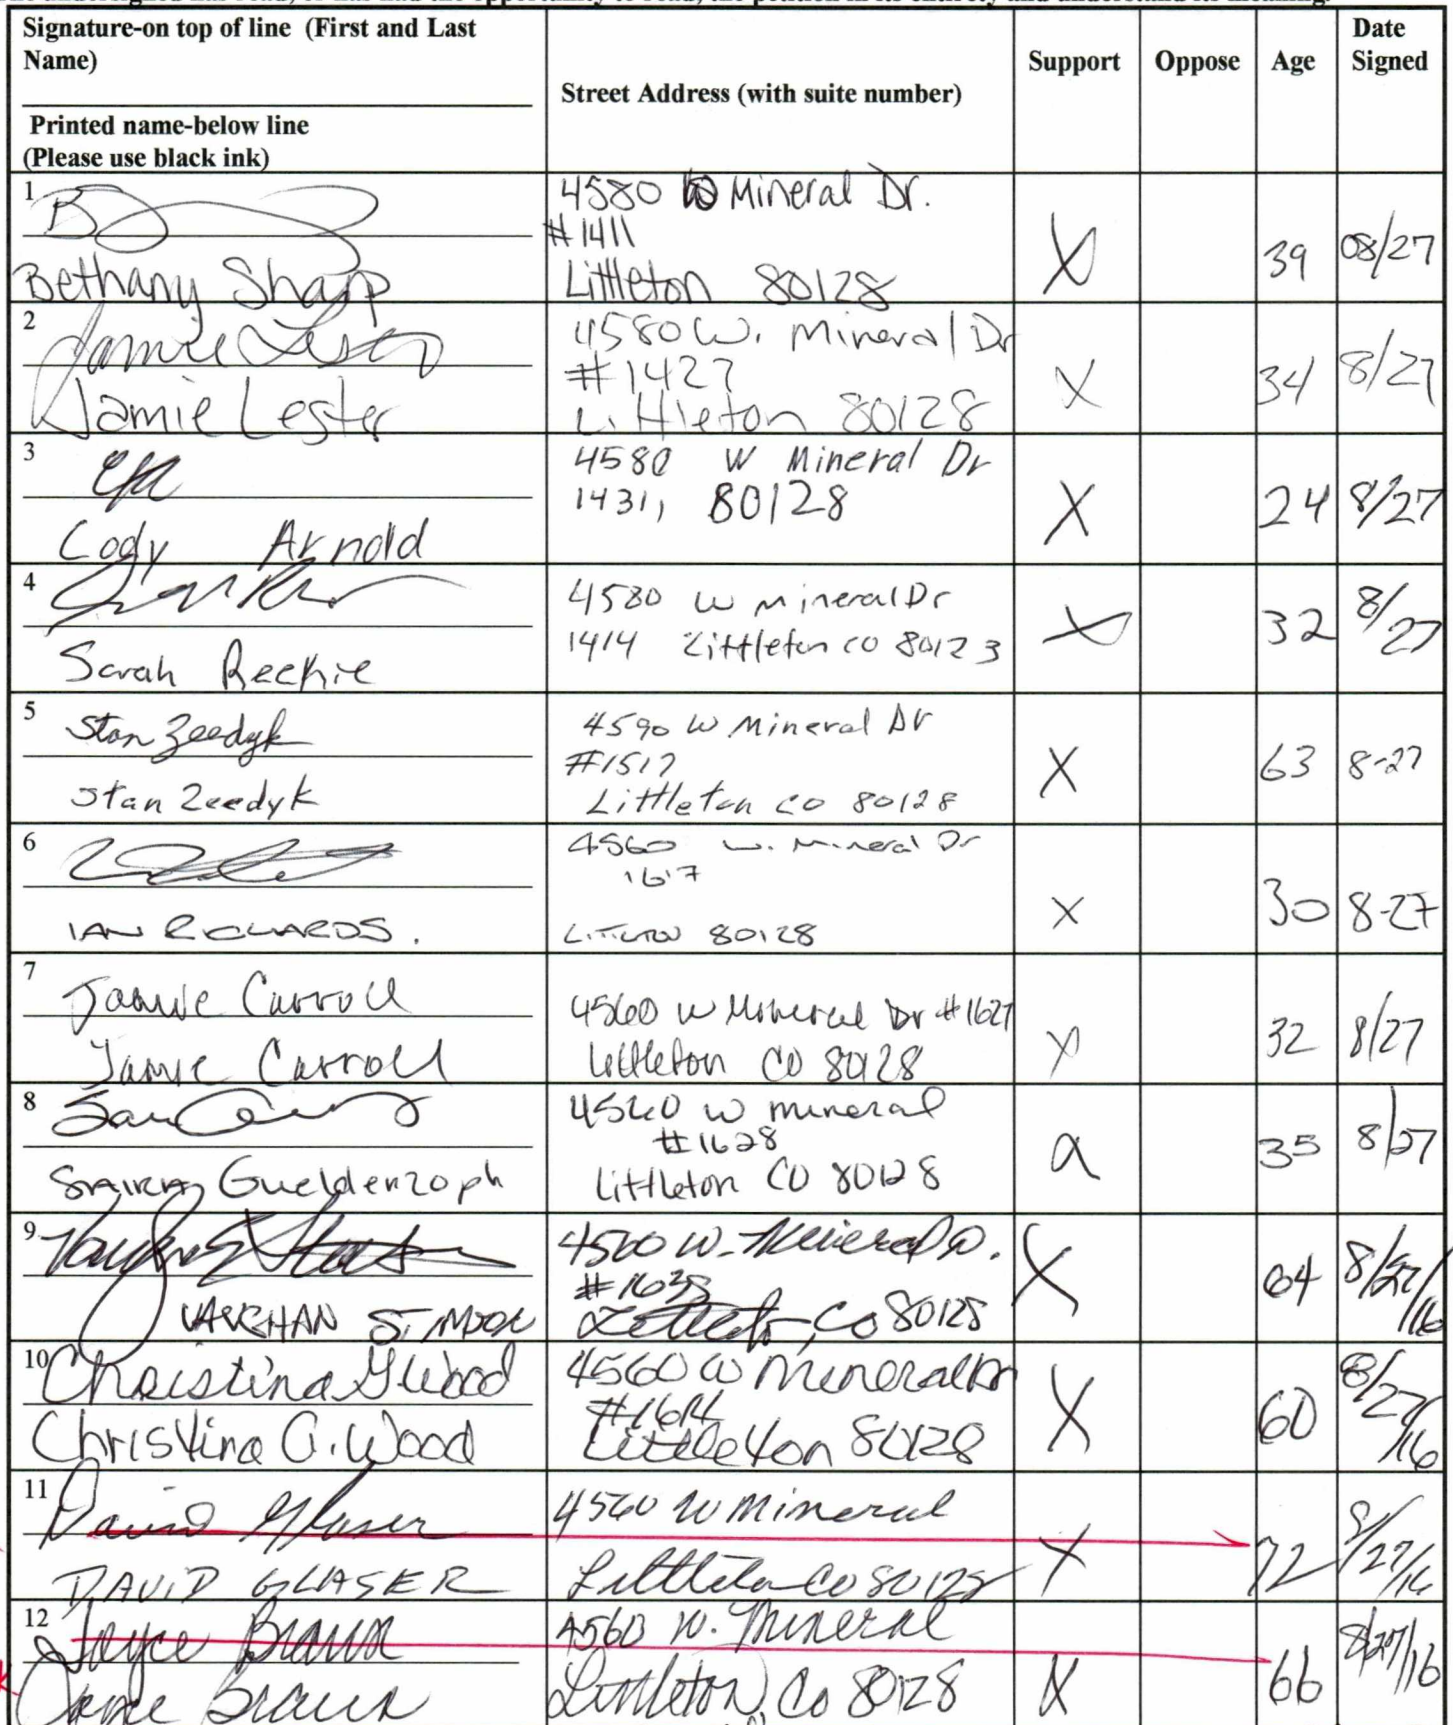 Signature-on top of line (First and Last Name)
Printed name-below line
(Please use black ink)
Street Address (with suite number)
Support
Oppose
Age
Date Signed
1
Bethany Sharp
4580 W Mineral Dr.
#1411
Littleton 80128
X
39
08/27
2
Jamie Lester
Jamie Lester
4580 W. Mineral Dr
#1427
Littleton 80128
X
34
8/27
3
Cody Arnold
4580 W Mineral Dr
1431, 80128
X
24
8/27
4
Sarah Reekie
4580 W Mineral Dr
1414 Littleton CO 80123
X
32
8/27
5
Stan Zeedyk
Stan Zeedyk
4590 W Mineral Dr
#1517
Littleton CO 80128
X
63
8-27
6
IAN RICHARDS.
4560 W. Mineral Dr
1617
80128
X
30
8-27
7
Jamie Carroll
Jamie Carroll
4560 W Mineral Dr #1627
Littleton CO 80128
X
32
8/27
8
Gueldenzoph
4560 W mineral
#1628
Littleton CO 80128
35
8/27
9
4560 W. Mineral D.
Littleton, Co 80128
X
64
8/27/16
10
Christina G Wood
Christina G. Wood
4560 W Mineral Dr
#1614
Littleton 80128
X
60
8/27/16
11
David Glaser
DAVID GLASER
4560 W Mineral
Littleton CO 80128
X
72
8/27/16
12
Joyce Braun
Joyce Braun
4560 W. Mineral
Littleton, Co 80128
X
66
8/27/16